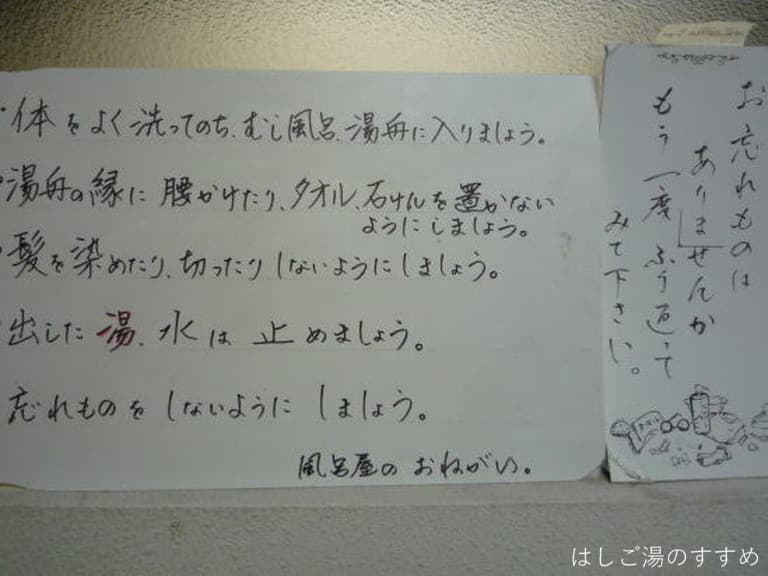 ・体をよく洗ってのち、むし風呂、湯舟に入りましょう。
・湯舟の縁に腰かけたり、タオル、石けんを置かない
ようにしましょう。
・髪を染めたり、切ったりしないようにしましょう。
・出した湯、水は止めましょう。
忘れものをしないようにしましょう。
風呂屋のおねがい。
お忘れものは
ありませんか
もう一度ふり返って
みて下さい。
はしご湯のすすめ